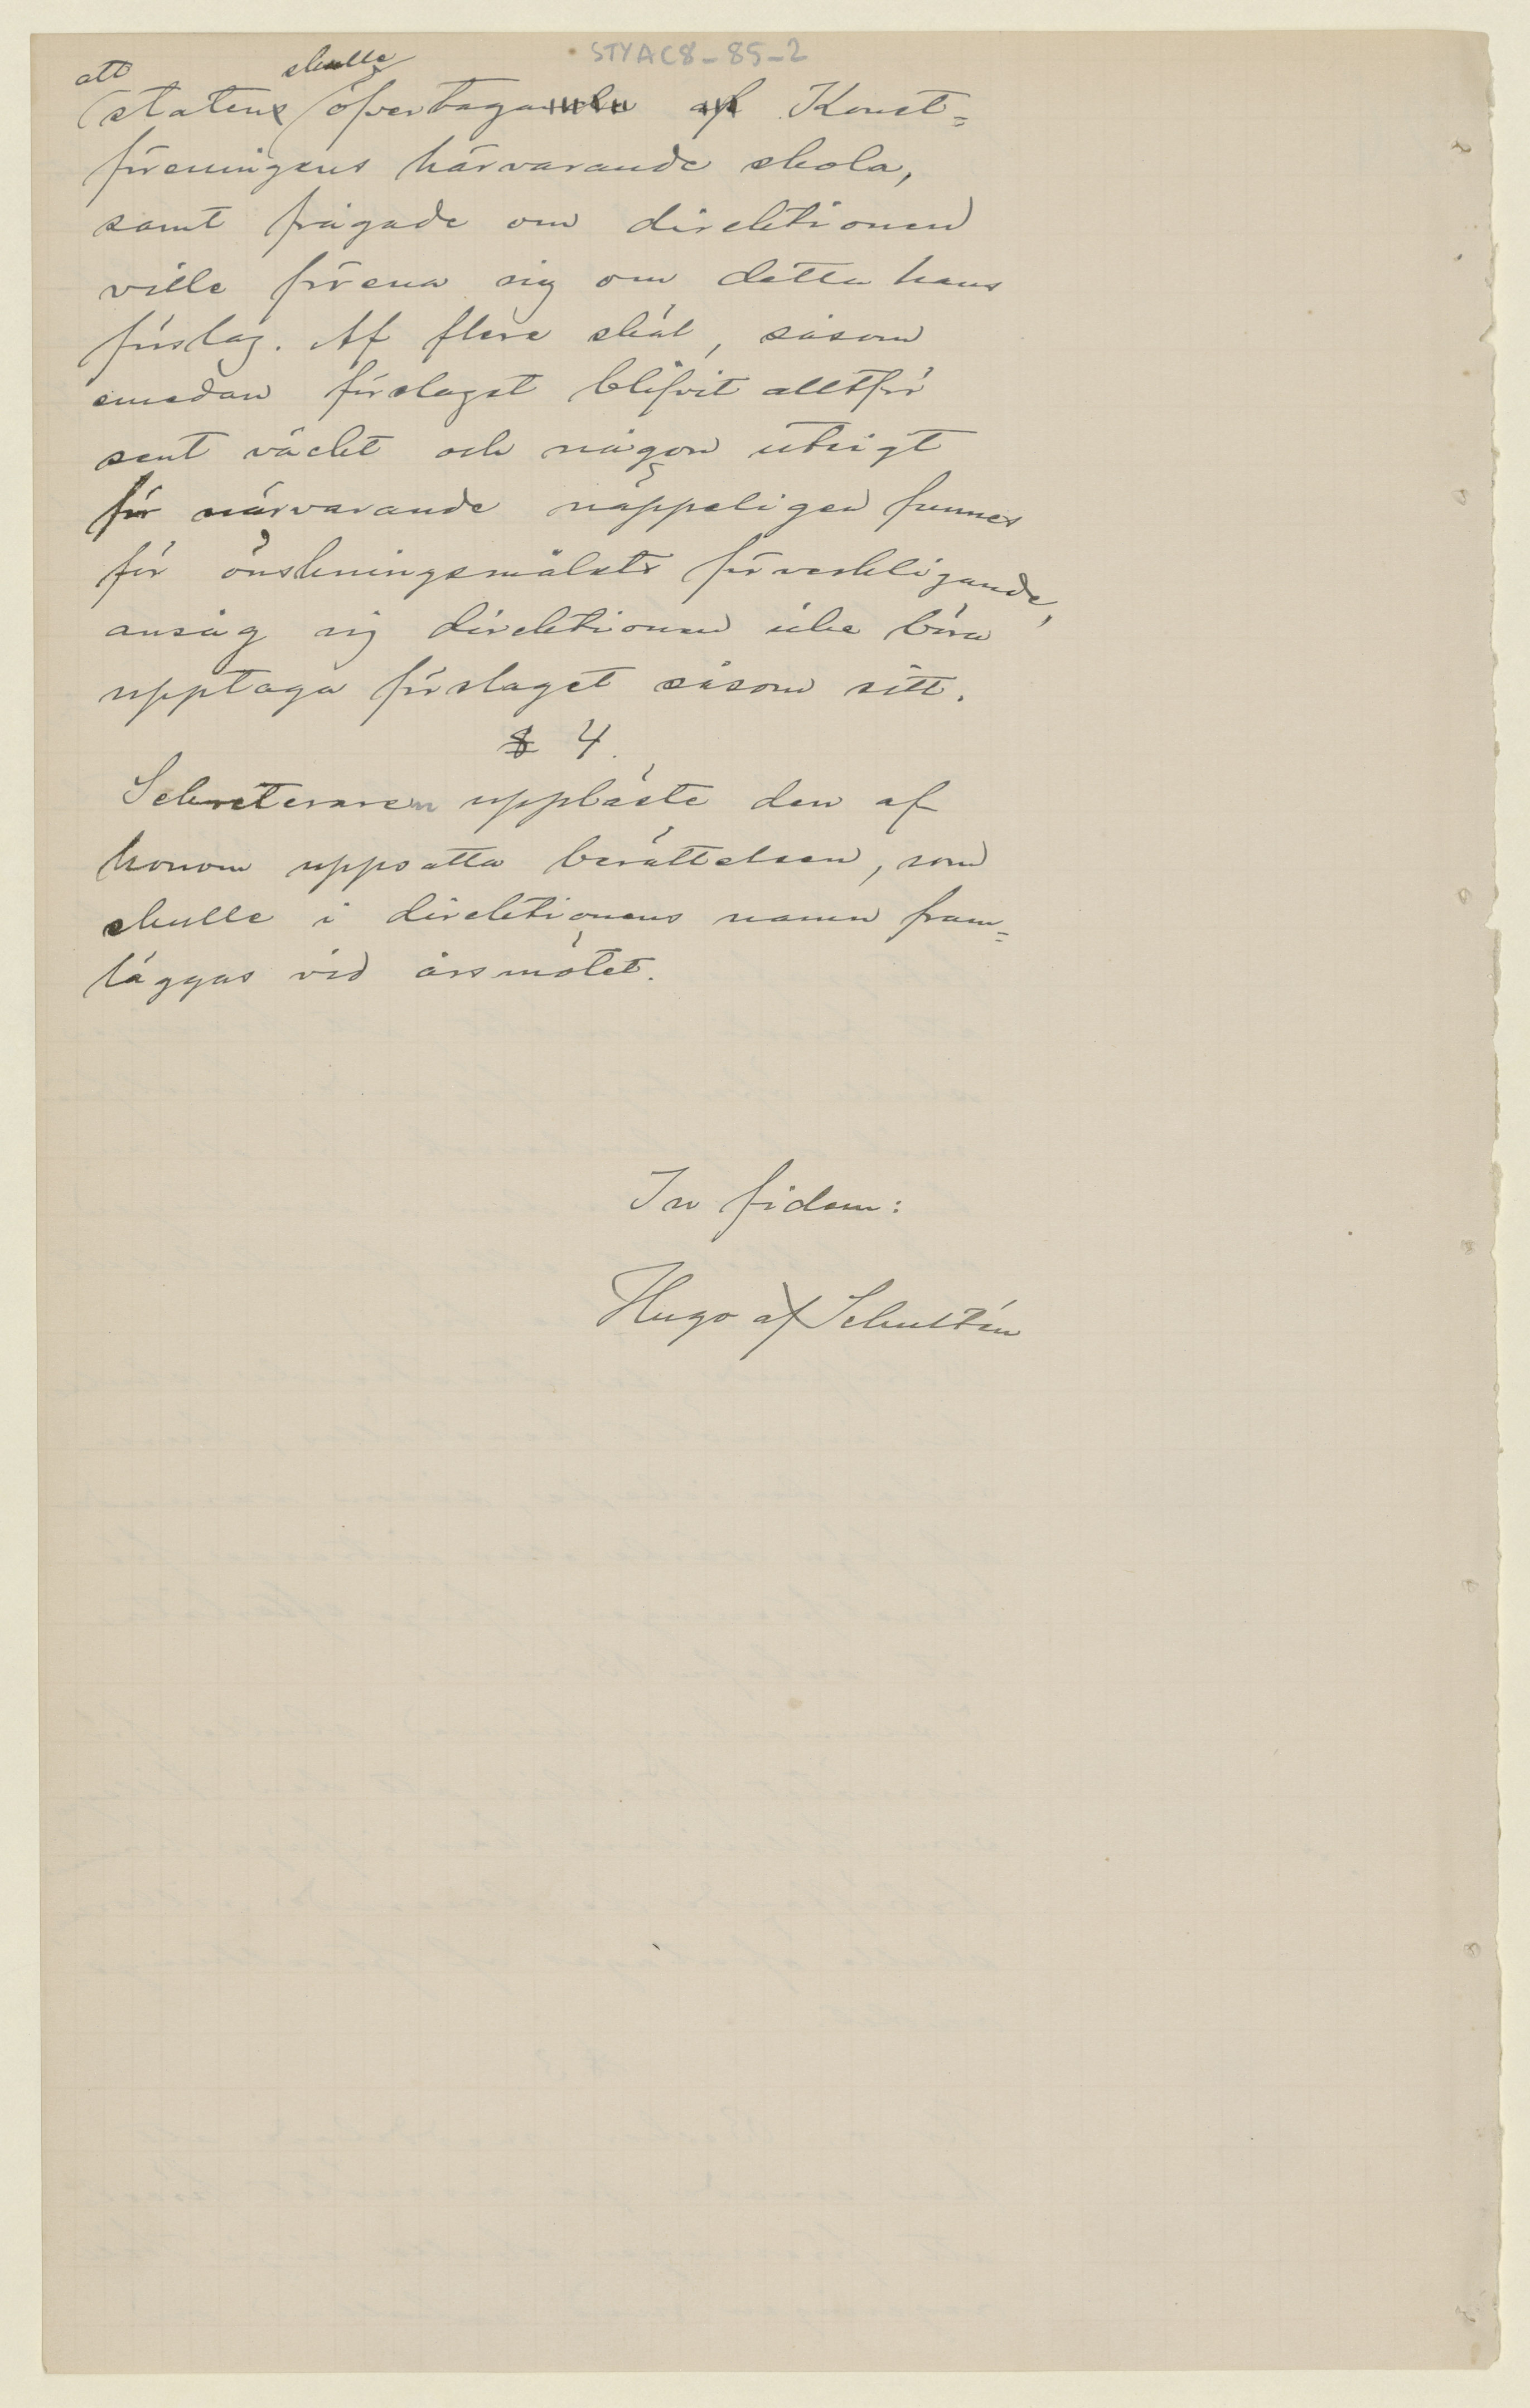 STYAC8-85-2
att skulle
statens öfvertagande af Konst=
föreningens härvarande skola,
samt frågade om direktionen
ville förena sig om detta hans
förslag. Af flere skäl, såsom
emedan förslaget blifvit alltför
sent väckt och någon utsigt
för närvarande näppeligen funnes
för önskningsmålets förverkligande,
ansåg sig direktionen icke böra
upptaga förslaget såsom sitt.
§ 4.
Sekreteraren uppläste den af
honom uppsatta berättelsen, som
skulle i direktionens namn fram=
läggas vid årsmötet.
In fidem:
Hugo af Schultén